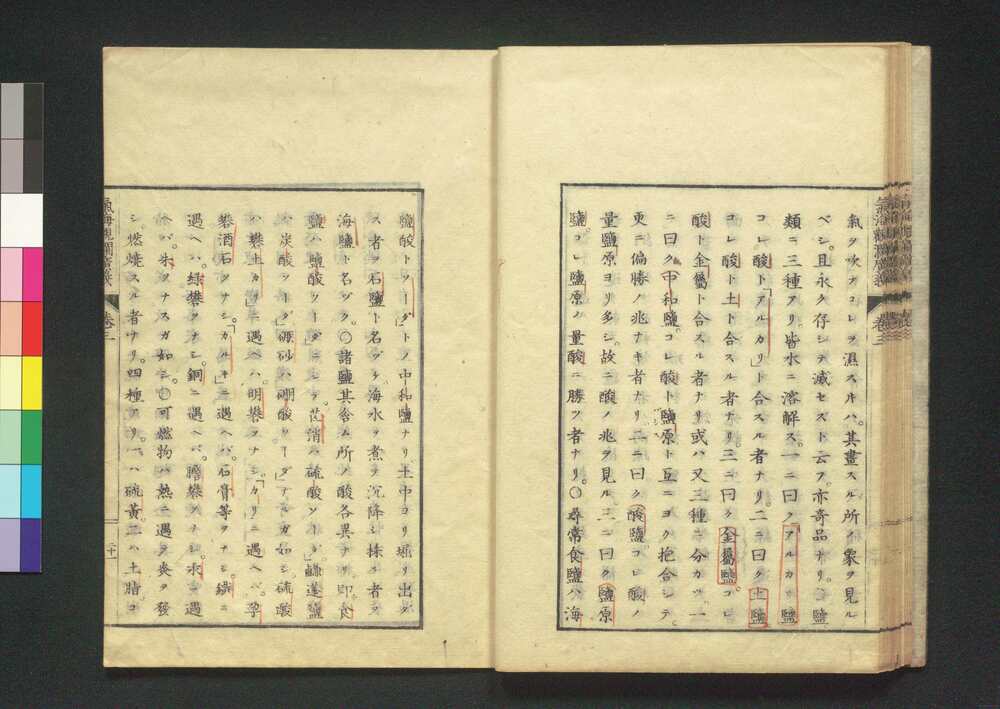 氣ヲ吹カコレヲ濕スキハ。其畫スル所ノ象ヲ見ル
ベシ。且永ク存シテ滅セズト云フ。亦奇品ナリ。〇鹽
類ニ三種アリ。皆水ニ溶解ス。一ニ曰ク「アルカリ鹽
コレ酸ト「アルカリ」ト合スル者ナリ。二ニ曰ク土鹽
コレ酸ト土ト合スル者ナリ。三ニ曰ク金屬鹽。コレ
酸ト金屬ト合スル者ナリ或ハ又三種ニ分カツ。一
ニ曰ク中和鹽。コレ酸ト鹽原ト互ニヨク抱合シテ。
更ニ偏勝ノ兆ナキ者ナリ。二ニ曰ク酸鹽。コレ酸ノ
量鹽原ヨリ多シ。故ニ酸ノ兆ヲ見ル三ニ曰ク鹽原
鹽。コレ鹽原ノ量酸ニ勝ツ者ナリ。〇尋常食鹽ハ海
氣海觀瀾廣義
卷三
鹽酸ト「ソーダ」トノ中和鹽ナリ土中ヨリ堀リ出ダ
ス者ヲ石鹽ト名ヅケ海水ヲ煮テ沉降シ採ル者ヲ
海鹽ト名ヅク。〇諸鹽其含ム所ノ酸各異ナリ。即食
鹽ハ鹽酸「ソーダ」ニシテ芒消ハ硫酸「ソーダ」鹹蓬鹽
ハ炭酸「ソーダ」硼砂ハ硼酸「ソーダ」ナルガ如シ硫酸
ハ礬土カリ」ニ遇ヘハ。明礬ヲナシ。「カリ」ニ遇ヘバ。孕
礬酒石ヲナシ。「カルキ」ニ遇ヘバ。石膏等ヲナシ。鐵ニ
遇ヘハ。綠礬ヲナシ。銅ニ遇ヘバ。膽礬ヲナシ。汞ニ遇
ヘバ。朱ヲナスガ如シ。〇可燃物ハ熱ニ遇ヲ炎ヲ發
シ。燃燒スル者ナリ。四種アリ。一ハ硫黃二ハ土脂コ
氣海觀瀾廣義
卷三
二十一